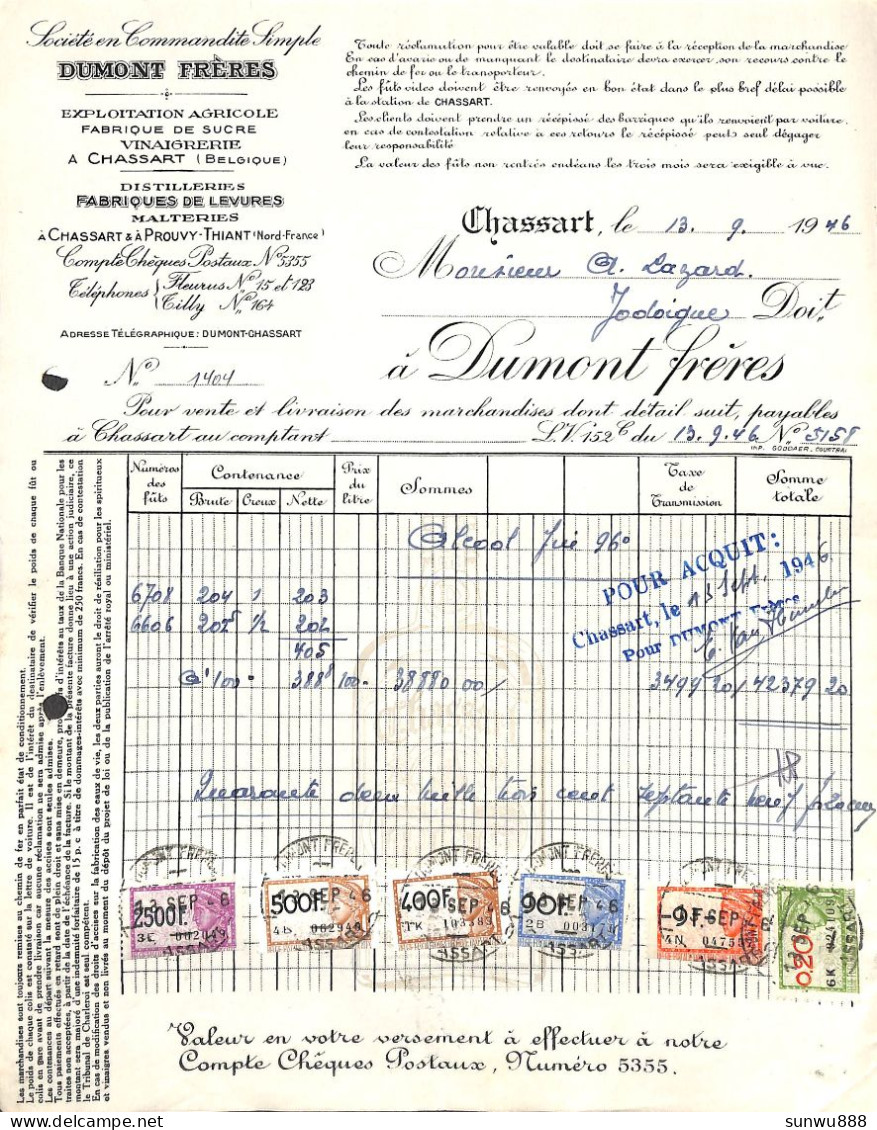 Société en Commandite Simple
DUMONT FRÈRES
EXPLOITATION AGRICOLE
FABRIQUE DE SUCRE
VINAIGRERIE
A CHASSART (BELGIQUE)
DISTILLERIES
FABRIQUES DE LEVURES
MALTERIES
À CHASSART & À PROUVY-THIANT (Nord-France)
Compte Chèques Postaux No 5355
Téléphones { Fleurus No 15 et 123
Tilly No 164
ADRESSE TÉLÉGRAPHIQUE: DUMONT-CHASSART
Toute réclamation pour être valable doit se faire à la réception de la marchandise
En cas d'avarie ou de manquant le destinataire devra exercer son recours contre le
chemin de fer ou le transporteur.
Les fûts vides doivent être renvoyés en bon état dans le plus bref délai possible
à la station de CHASSART.
Les clients doivent prendre un récépissé des barriques qu'ils renvoient par voiture,
en cas de contestation relative à ces retours le récépissé peut seul dégager
leur responsabilité
La valeur des fûts non rentrés endéans les trois mois sera exigible à vue.
Chassart, le 13. 9. 1946
Monsieur A. Lazard.
Jodoigne Doit
à Dumont frères
No 1404
Pour vente et livraison des marchandises dont détail suit, payables
à Chassart au comptant L.V. 152c du 13.9.46 No 5158
IMP. GOODAER, COURTRAI
Numéros des fûts Contenance Brute Creux Nette Prix du litre Sommes Taxe de Transmission Somme totale
Alcool fin 96°
POUR ACQUIT:
Chassart, le 13 Sept. 1946
Pour DUMONT Frères
6708 204 1 203
6606 202 5 1/2 202
405
A 100° 388 8 100- 38880 00/ 3499 20/ 42379 20
Quarante deux mille trois cent septante neuf francs
DUMONT FRÈRES
13 SEP 46
CHASSART
2500F.
3E 002049
500F.
4B 002946
400F.
1K 103389
90F.
2B 003179
9F.
4N 04755
0,20
6K 024109
Valeur en votre versement à effectuer à notre
Compte Chèques Postaux, Numéro 5355.
Les marchandises sont toujours remises au chemin de fer en parfait état de conditionnement.
Le poids de chaque colis est constaté sur la lettre de voiture. Il est de l'intérêt du destinataire de vérifier le poids de chaque fût ou
colis en gare avant de prendre livraison car aucune réclamation ne sera admise après l'enlèvement.
Les contenances au départ suivant la mesure des accises sont seules admises.
Tous paiements effectués en retard seront de plein droit et sans mise en demeure, d'intérêts au taux de la Banque Nationale pour les
traites non acceptées, à partir de la date de l'échéance de la facture. Si le montant de la présente facture donne lieu à une action judiciaire, ce
montant sera majoré d'une indemnité forfaitaire de 15 p. c à titre de dommages-intérêts avec minimum de 250 francs. En cas de contestation
le Tribunal de Charleroi est seul compétent.
En cas de modification des droits d'accises sur la fabrication des eaux de vie, les deux parties auront le droit de résiliation pour les spiritueux
et vinaigres vendus et non livrés au moment du dépôt du projet de loi ou de la publication de l'arrêté royal ou ministériel.
sunwu888